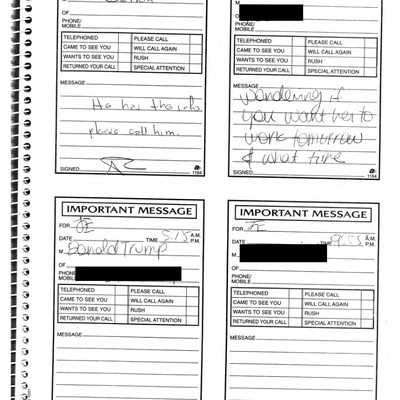 M
OF
PHONE/
MOBILE
TELEPHONED PLEASE CALL
CAME TO SEE YOU WILL CALL AGAIN
WANTS TO SEE YOU RUSH
RETURNED YOUR CALL SPECIAL ATTENTION
MESSAGE
He has the info
please call him.
SIGNED 1184
M
OF
PHONE/
MOBILE
TELEPHONED PLEASE CALL
CAME TO SEE YOU WILL CALL AGAIN
WANTS TO SEE YOU RUSH
RETURNED YOUR CALL SPECIAL ATTENTION
MESSAGE
Wondering if
you want her to
work tomorrow
& what time
SIGNED 1184
IMPORTANT MESSAGE
FOR JE
DATE TIME 5:15 A.M.
P.M.
M Donald Trump
OF
PHONE/
MOBILE
TELEPHONED PLEASE CALL
CAME TO SEE YOU WILL CALL AGAIN
WANTS TO SEE YOU RUSH
RETURNED YOUR CALL SPECIAL ATTENTION
MESSAGE
IMPORTANT MESSAGE
FOR JE
DATE TIME A.M.
P.M.
M
OF
PHONE/
MOBILE
TELEPHONED PLEASE CALL
CAME TO SEE YOU WILL CALL AGAIN
WANTS TO SEE YOU RUSH
RETURNED YOUR CALL SPECIAL ATTENTION
MESSAGE